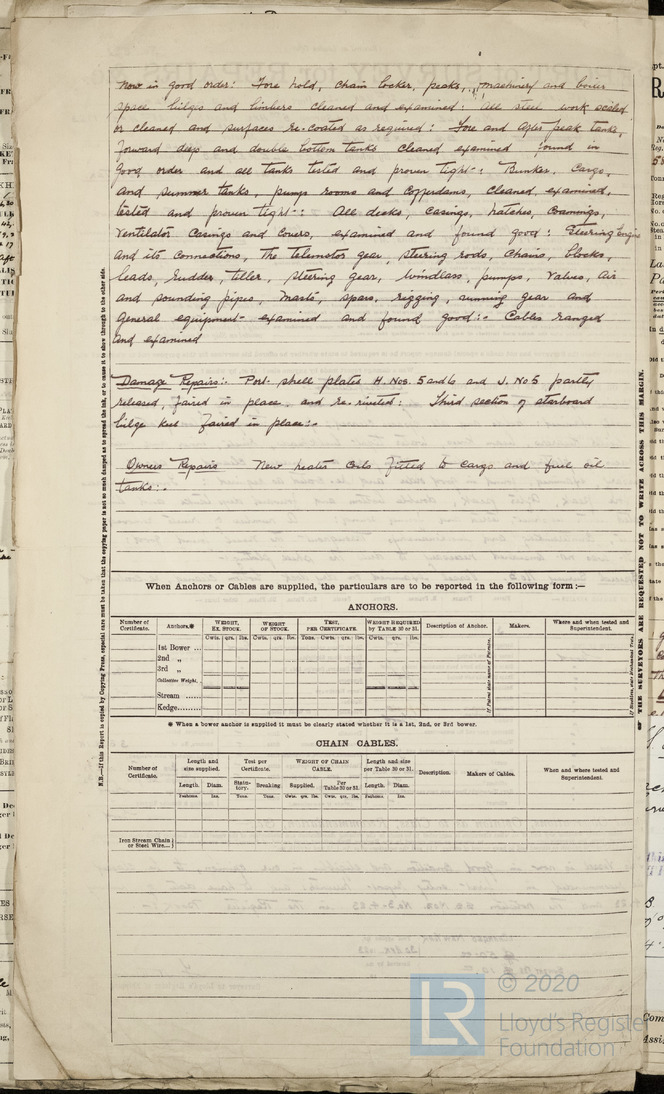 now in good order: Fore hold, chain locker, peaks, machinery and boiler
space bilges and limbers cleaned and examined: all steel work scaled
or cleaned and surfaces re-coated as required: Fore and after peak tanks,
forward deep and double bottom tanks cleaned examined found in
good order and all tanks tested and proven tight: Bunker, Cargo,
and summer tanks, pump rooms and cofferdams, cleaned, examined,
tested and proven tight: All decks, casings, hatches, coamings,
Ventilator casings and covers, examined and found good: Steering Engine
and its connections, the telemotor gear, steering rods, chains, blocks,
leads, rudder, tiller, steering gear, windlass, pumps, valves, air
and sounding pipes, masts, spars, rigging, running gear and
general equipment examined and found good:- Cables ranged
and examined
Damage Repairs:- Port shell plates H. Nos. 5 and 6 and J. No 5 partly
released, faired in place, and re-riveted: Third section of starboard
bilge keel faired in place:-
Owners Repairs New heater coils fitted to cargo and fuel oil
tanks:-
N.B.—If this Report is copied by Copying Press, especial care must be taken that the copying paper is not so much damped as to spread the ink, or to cause it to show through to the other side.
THE SURVEYORS ARE REQUESTED NOT TO WRITE ACROSS THIS MARGIN.
When Anchors or Cables are supplied, the particulars are to be reported in the following form :—
ANCHORS.
Number of Certificate. Anchors.* WEIGHT, EX. STOCK. WEIGHT OF STOCK. TEST, PER CERTIFICATE. WEIGHT REQUIRED by TABLE 30 or 31. Description of Anchor. Makers. Where and when tested and Superintendent.
Cwts. qrs. lbs. Cwts. qrs. lbs. Tons. Cwts. qrs. lbs. Cwts. qrs. lbs.
1st Bower ...
2nd „
3rd „
Collective Weight.
Stream ......
Kedge........
* When a bower anchor is supplied it must be clearly stated whether it is a 1st, 2nd, or 3rd bower.
CHAIN CABLES.
Number of Certificate. Length and size supplied. Test per Certificate. WEIGHT OF CHAIN CABLE. Length and size per Table 30 or 31. Description. Makers of Cables. When and where tested and Superintendent.
Length. Diam. Statutory. Breaking Supplied. Per Table 30 or 31. Length. Diam.
Fathoms. Ins. Tons. Tons. Cwts. qrs. lbs. Cwts. qrs. lbs. Fathoms. Ins.
Iron Stream Chain
or Steel Wire...
LR
© 2020
Lloyd's Register
Foundation